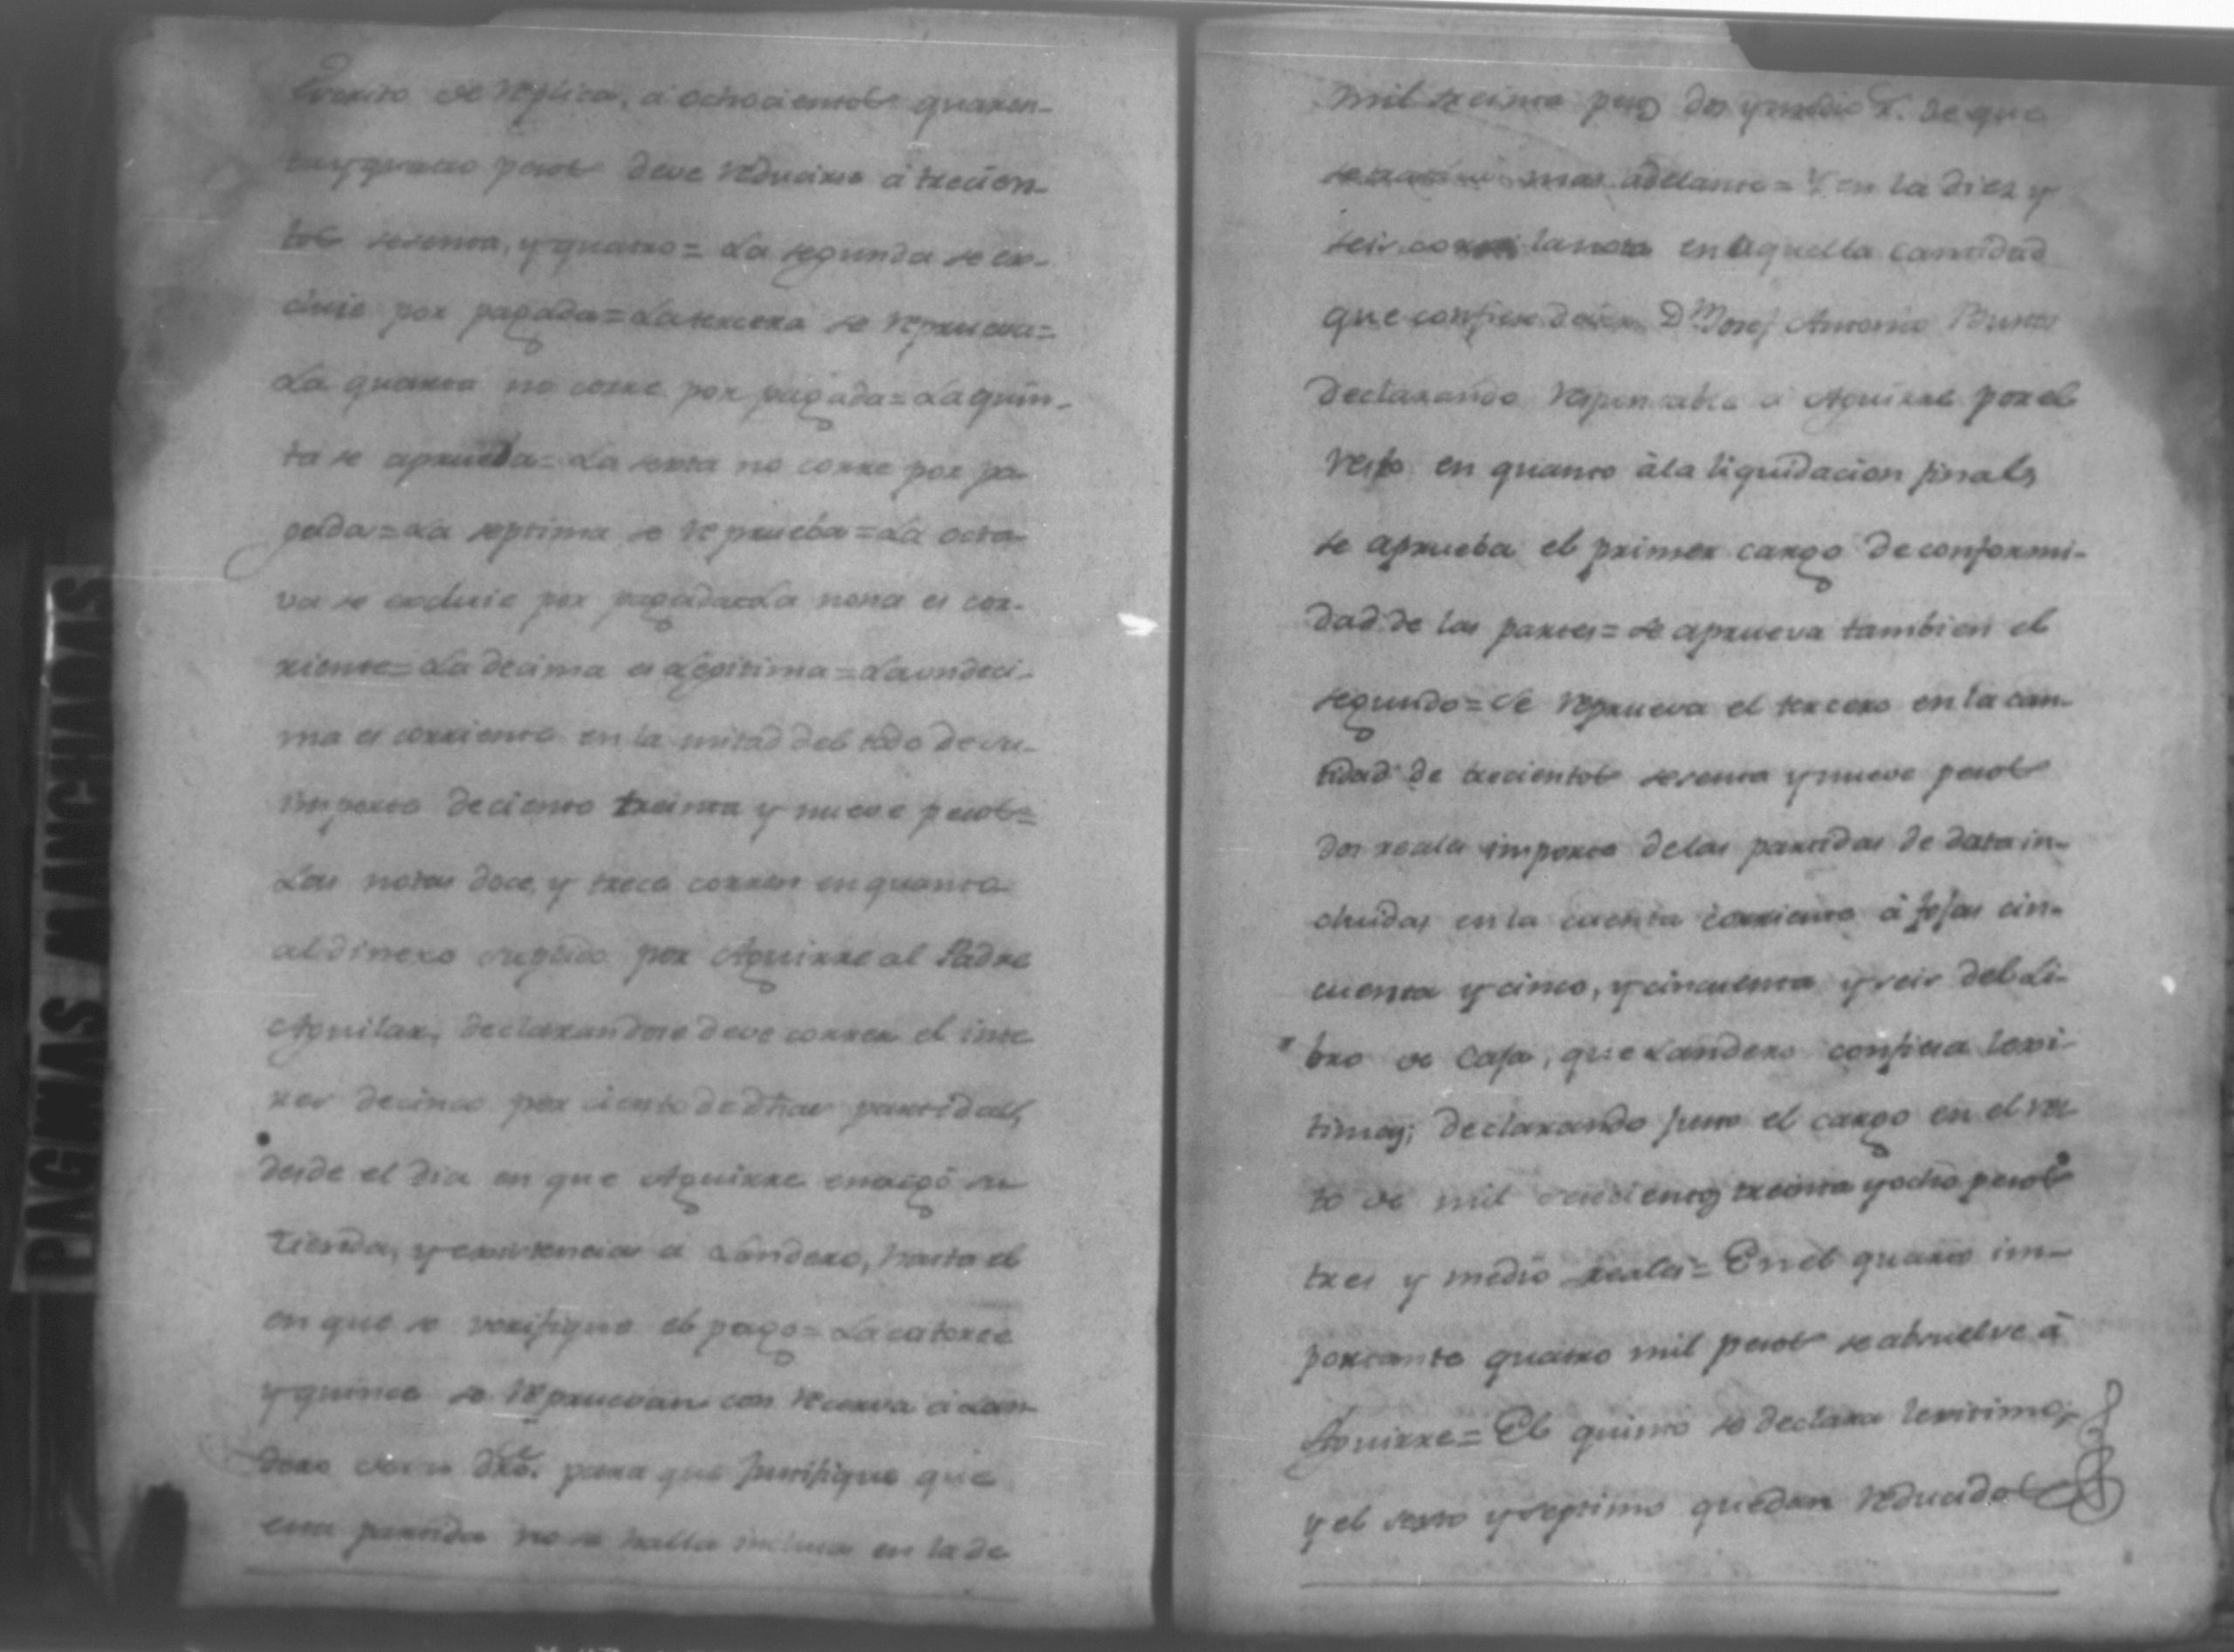 Escrito de replica, á ochocientos quaren-
ta y quatro pesos deve reducirse á trecien-
tos sesenta, y quatro = La segunda se ex-
cluie por pagada = La tercera se reprueva =
La quarta no corre por pagada = La quin-
ta se aprueba = La sexta no corre por pa-
gada = La septima se reprueba = La octa-
va se excluie por pagada = La nona es cor-
riente = La decima es legitima = La undeci-
ma es corriente en la mitad del todo de su
importe de ciento treinta y nueve pesos =
Las notas doce, y trece corren en quanto
al dinero suplido por Aguirre al Padre
Aguilar, declarandose deve correr el inte
res de cinco por ciento de dhas partidas,
desde el dia en que Aguirre entregó su
Tienda, y existencias á Landero, hasta el
en que se verifique el pago = La catorce
y quince se reprueban con reserva á Lan-
dero de su dro. para que justifique que
esta partida no se halla inclusa en la de
mil treinta pesos dos y medio rs. de que
se tratará mas adelante = Y en la diez y
seis corre la nota en aquella cantidad
que confiese dever Dn Josef Antonio
declarando responsable á Aguirre por el
resto en quanto á la liquidacion final,
se aprueba el primer cargo de conformi-
dad de las partes = se aprueva tambien el
segundo = se reprueva el tercero en la can-
tidad de trecientos sesenta y nueve pesos
dos reales importe de las partidas de data in-
cluidas en la cuenta corriente á fojas cin-
cuenta y cinco, y cincuenta y seis del Li-
bro de Caja, que Landero confiesa lexi-
timas; declarando justo el cargo en el res
to de mil treinta y ocho pesos
tres y medio reales = En el quarto im-
portante quatro mil pesos se absuelve á
Aguirre = El quinto se declara lexitimo;
y el sexto y septimo quedan reducidos
PAGINAS MANCHADAS